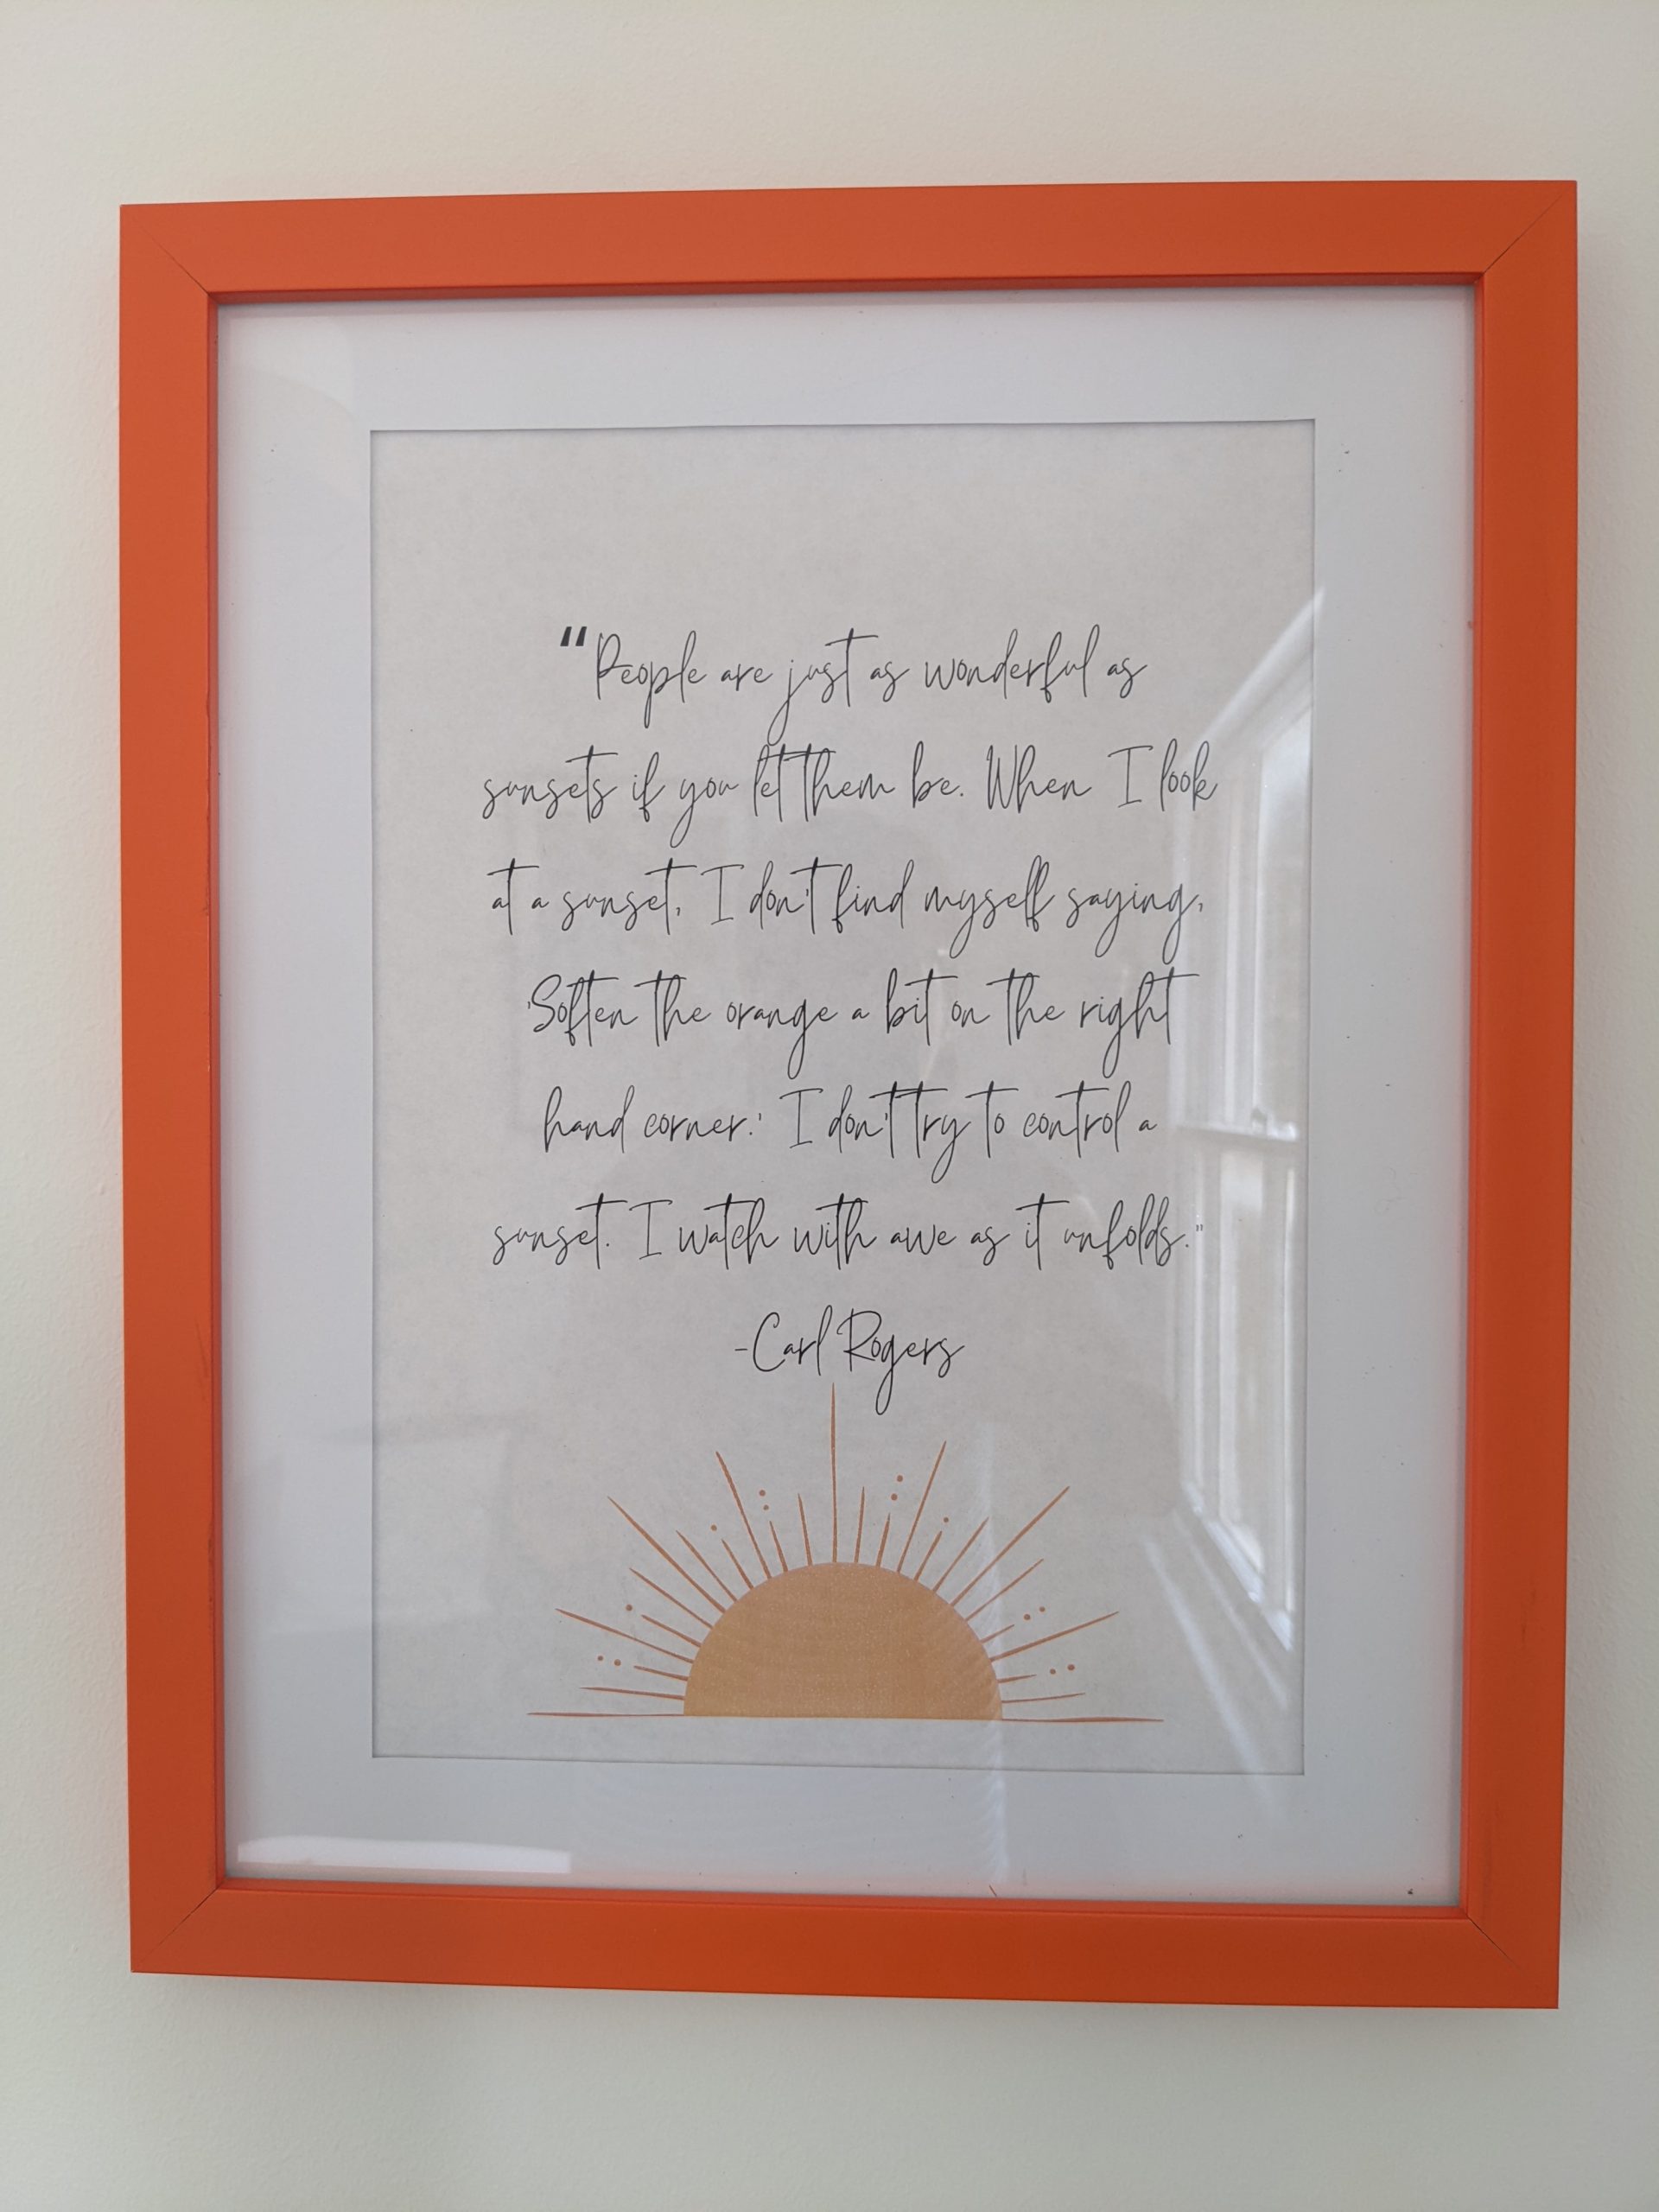 “People are just as wonderful as
sunsets if you let them be. When I look
at a sunset, I don't find myself saying,
'Soften the orange a bit on the right
hand corner.' I don't try to control a
sunset. I watch with awe as it unfolds."
-Carl Rogers